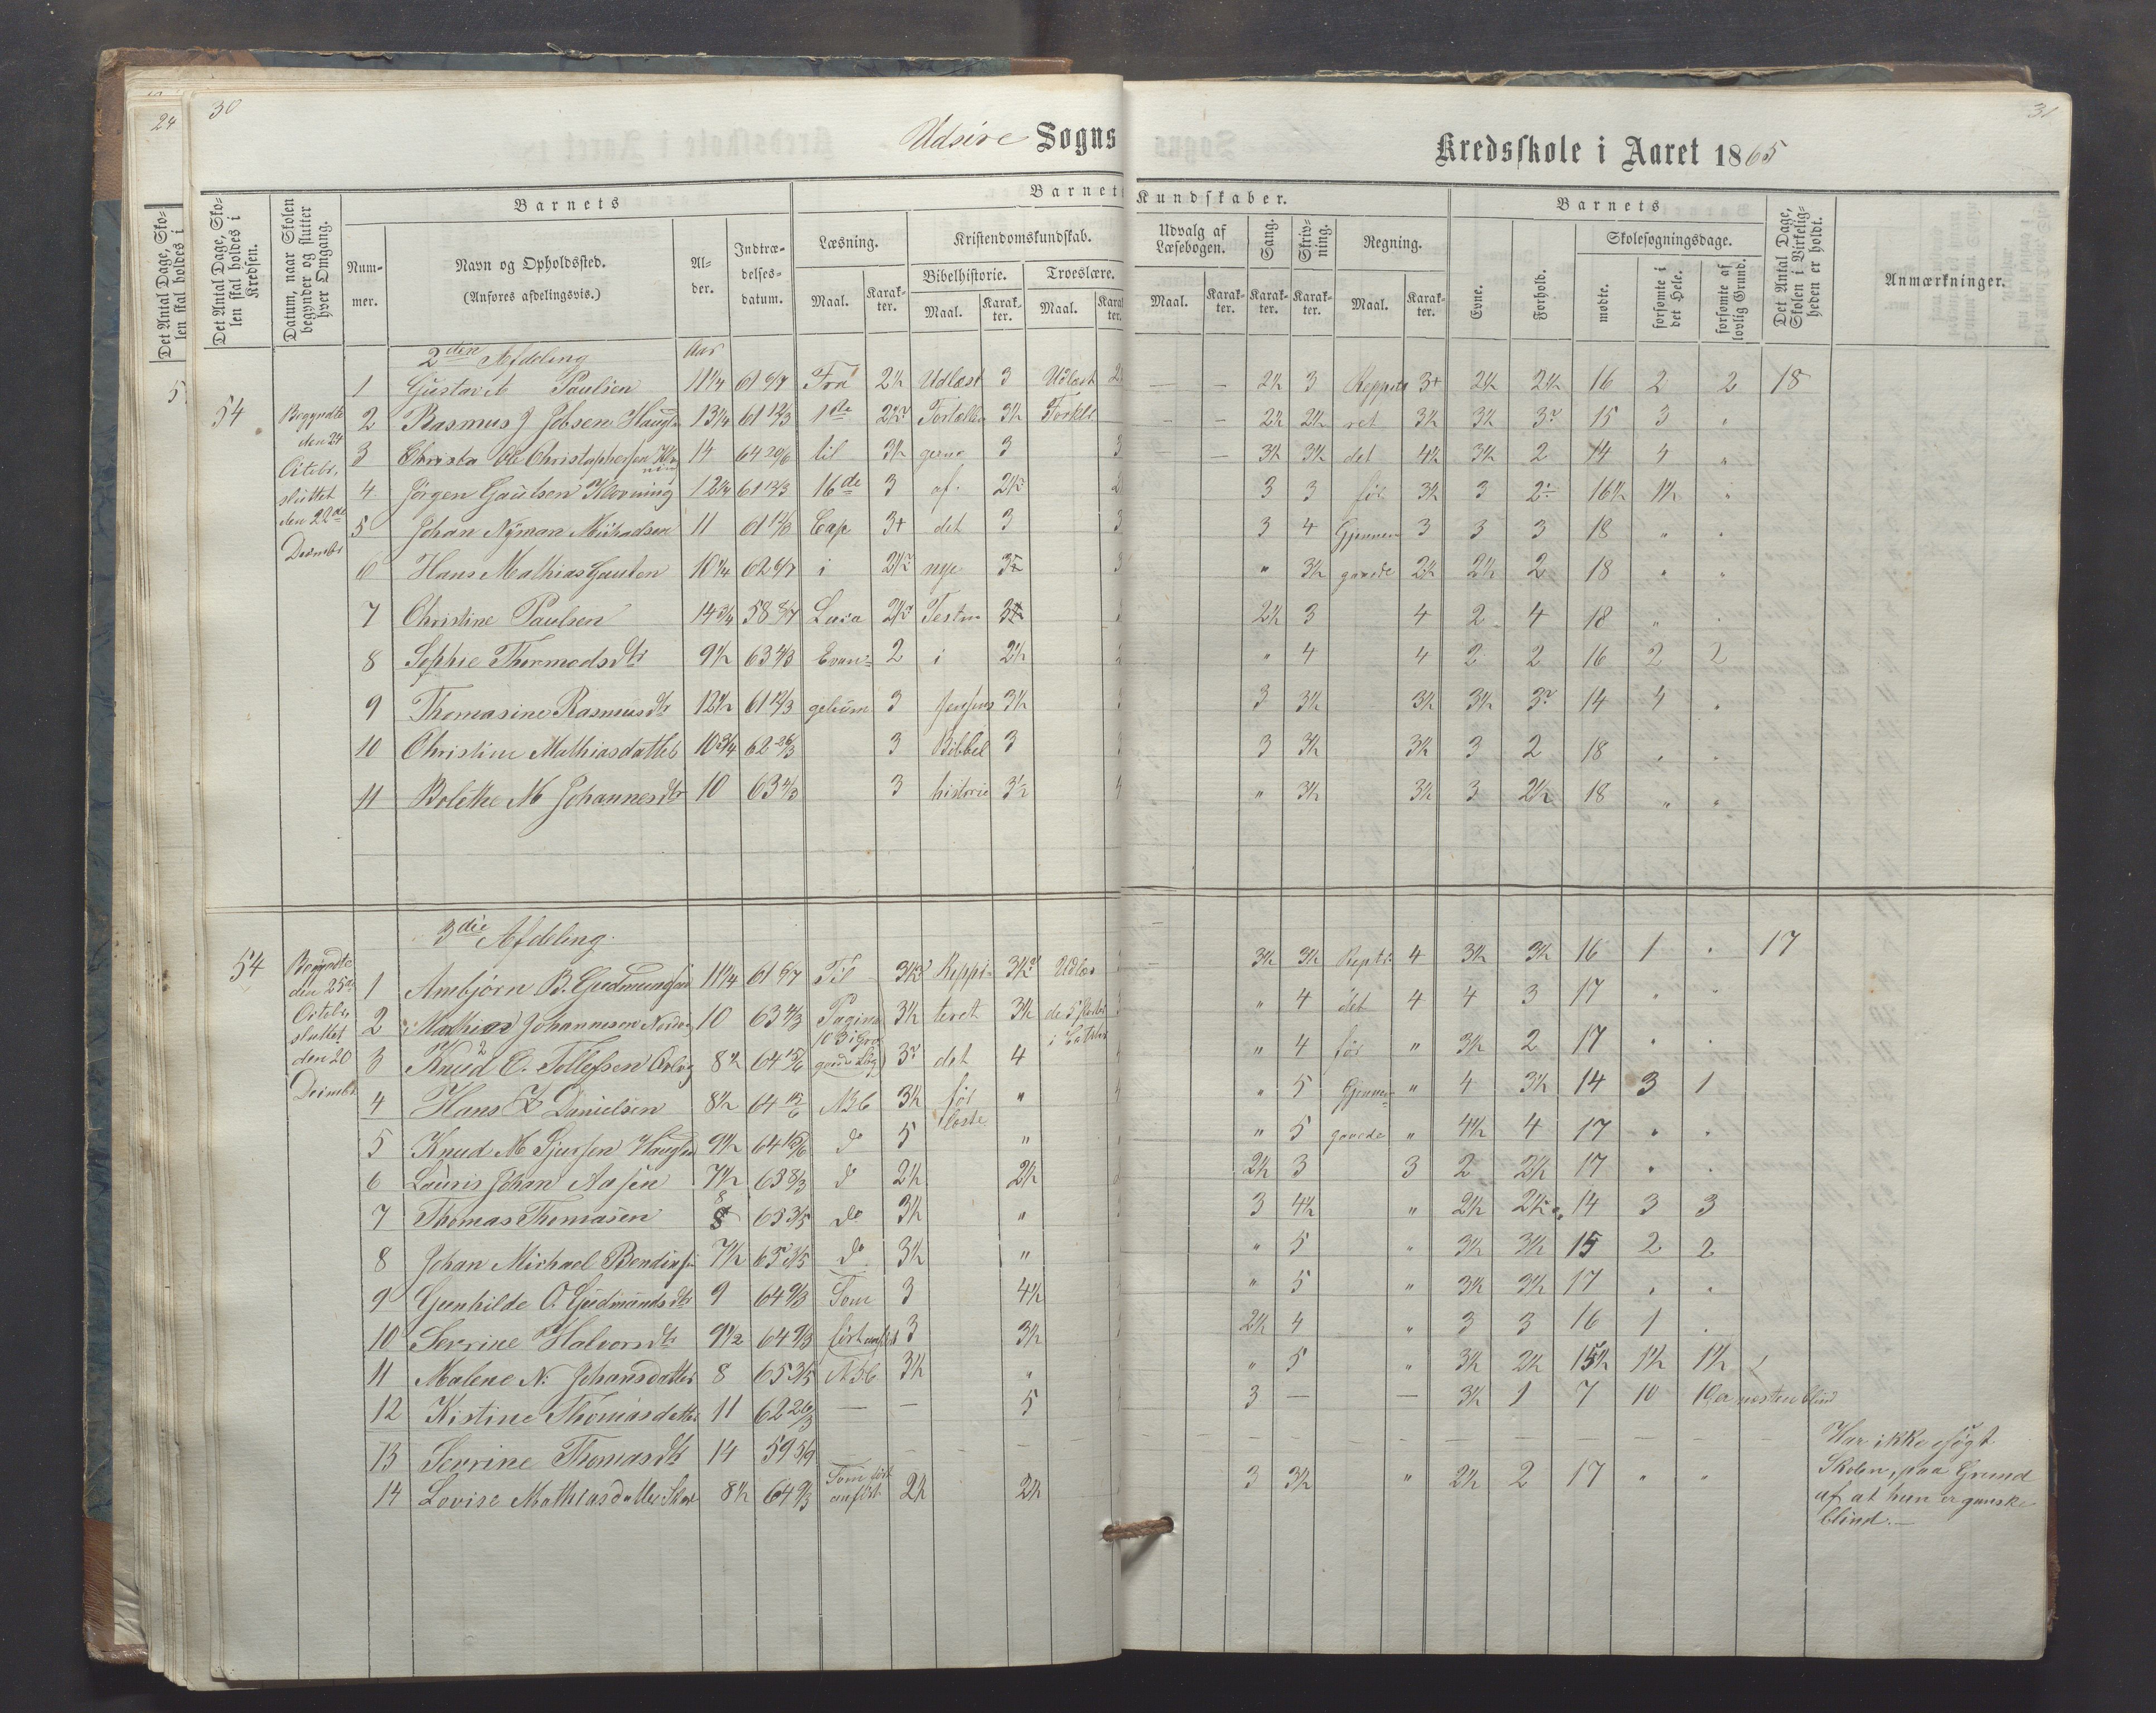 30
24
31
Udsire Sogns Kredsskole i Aaret 1865
Det Antal Dage, Skolen skal holdes i
Det Antal Dage, Skolen skal holdes i Kredsen.
Datum, naar Skolen begynder og slutter hver Omgang.
Barnets
Nummer.
Navn og Opholdssted.
(Anføres afdelingsvis.)
Alder.
Indtrædelsesdatum.
Barnets Kundskaber.
Læsning.
Maal.
Karakter.
Kristendomskundskab.
Bibelhistorie.
Maal.
Karakter.
Troeslære.
Maal.
Karakter.
Udvalg af Læsebogen.
Maal.
Karakter.
Sang.
Karakter.
Skrivning.
Karakter.
Regning.
Maal.
Karakter.
Barnets
Evne.
Forhold.
Skolesøgningsdage.
mødte.
forsømte i det Hele.
forsømte af lovlig Grund.
Det Antal Dage, Skolen i Virkeligheden er holdt.
Anmærkninger.
2den Afdeling Aar
5
54
Begyndte den 24 Octobr, sluttet den 22de Decembr
1 Gustav A Paulsen 11 1/4 61 6/7 Fra 2½ Udlæst 3 Udlæst — — 2½ 3 Reppete 3+ 2½ 2½ 16 2 2 18
2 Rasmus J Jobsen Haugl 13 1/4 61 12/3 1ste Fortællin 3½ Forkl — — 2½ 2½ ret 3½ 3½ 3 15 3 "
3 Ole Christophersen 14 64 20/6 til 3½ gerne 3 3 — — 3½ 3½ det 4½ 3½ 2 14 4 "
4 Jørgen Gautsen Klovning 12 1/4 61 12/3 16de 3 af 2½ 3 3 før 3½ 3 2 16½ 1½ "
5 Johan Nyman Michaelsen 11 61 12/3 Cap 3+ det 3 3 3 4 Gjennem 3 3 3 18 " "
6 Hans Mathias Gautsen 10 1/4 62 6/7 i 2½ nye 3 " 3½ gaaede 2½ 2½ 2 18 " "
7 Christine Paulsen 14 3/4 58 8/7 Luca 2½ Testm 2½ 3 4 2 4 18 " "
8 Sophie Thormodsdtr 9½ 63 4/3 Evan= 2 i 2½ " 4 4 2 2 16 2 2
9 Thomasine Rasmusdtr 12½ 61 12/3 gelium 3 3½ 3 3½ 3½ 3½ 3 14 4 "
10 Christine Mathiasdatter 10 3/4 62 26/3 3 Bibbel 3 3 3½ 3½ 3 2 18 " "
11 Bolette M Johannesdtr 10 63 4/3 3 historie 3½ " 3½ 3½ 3 2½ 18 " "
3die Afdeling.
54
Begyndte den 25de Octobr sluttet den 20 Decembr
1 Ambjørn B. Gudmundsen 11 1/4 61 6/7 Til 3½ Reppi= 3½ Udlæs 3½ 3½ Repti 4 3½ 3½ 16 1 " 17
2 Mathias Johannesen 10 63 4/3 Pagina 3½ teret 3½ " 4 det 4 4 3 17 " "
3 Knud E. Tollefsen 8½ 64 15/6 3 det 4 " 4 før " 3½ 2 17 " "
4 Hans Z Danielsen 8½ 64 15/6 ABC 3½ før " " 5 Gjennem " 4 3½ 14 3 1
læste
5 Knud M Sjursen Haugla 9½ 64 15/6 do 5 " " 5 gaaede " 4½ 4 17 " "
6 Lauris Johan Aasen 7½ 63 8/3 do 2½ 2½ 2½ 3 3 2 2½ 17 " "
7 Thomas Thomasen 8 65 3/5 do 3½ " 3 4½ " 2½ 2½ 14 3 3
8 Johan Michael Bendixsen 7½ 65 3/5 do 3½ " " 5 " 3½ 3½ 15 2 2
9 Gunhilde O. Gudmundsdtr 9 64 9/3 Som 3 4½ " 5 " 3½ 3½ 17 " "
10 Serrine Halvorsdtr 9 1/2 64 9/3 først anført 3 3½ 2½ 4 " 3 3 16 1 "
11 Malene N. Johansdatter 8 65 3/5 ABC 3½ " " 5 " 3½ 2½ 15½ 1½ 1½
12 Kistine Thomasdatter 11 62 26/3 — — 5 3 — — 3½ 1 7 10 10 er næsten blind
13 Serrine Thomasdtr 14 59 5/9 — — — — — — — — — —
14 Lovise Mathiasdatter 8½ 64 9/3 Som først anført 2½ 2½ 3 3½ " 2½ 2 17 " "
Har ikke søgt
Skolen, paa Grund
af at hun er ganske
blind.—